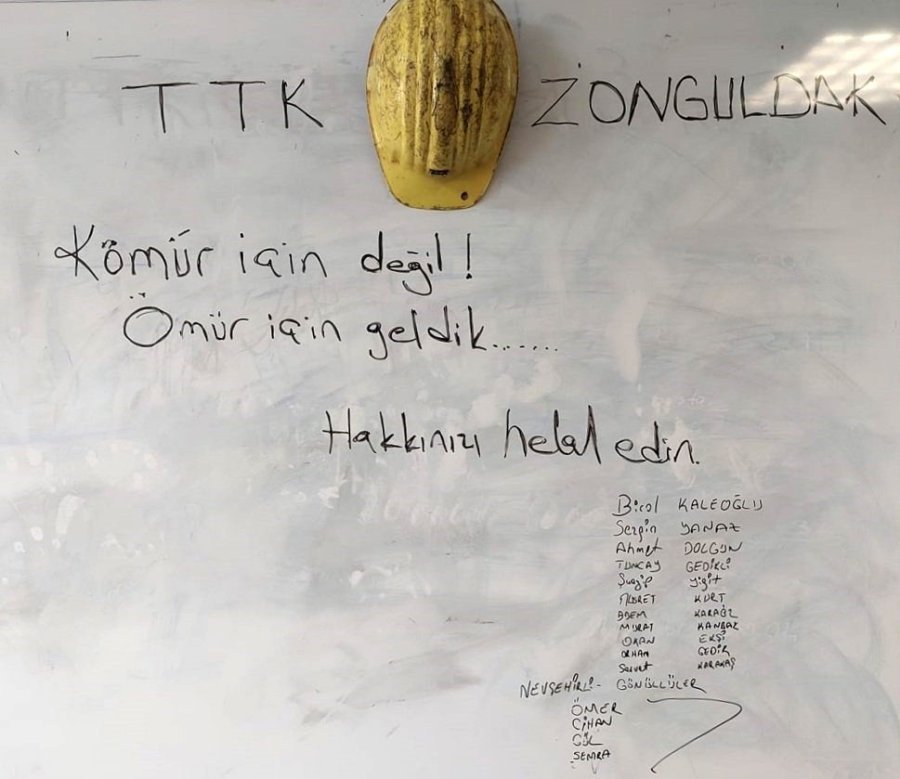 TTK ZONGULDAK
Kömür için değil!
Ömür için geldik......
Hakkınızı helal edin.
Birol KALEOĞLU
Sezgin YANAZ
Ahmet DOLGUN
TUNCAY GEDİKLİ
Yiğit
KURT
ADEM KARAĞZ
MURAT KANBAZ
OKAN EKŞİ
ORHAN GEDİK
Servet KARAKAŞ
NEVŞEHİRLİ- GÖNÜLLÜLER
ÖMER
CİHAN
GÜL
SEMRA